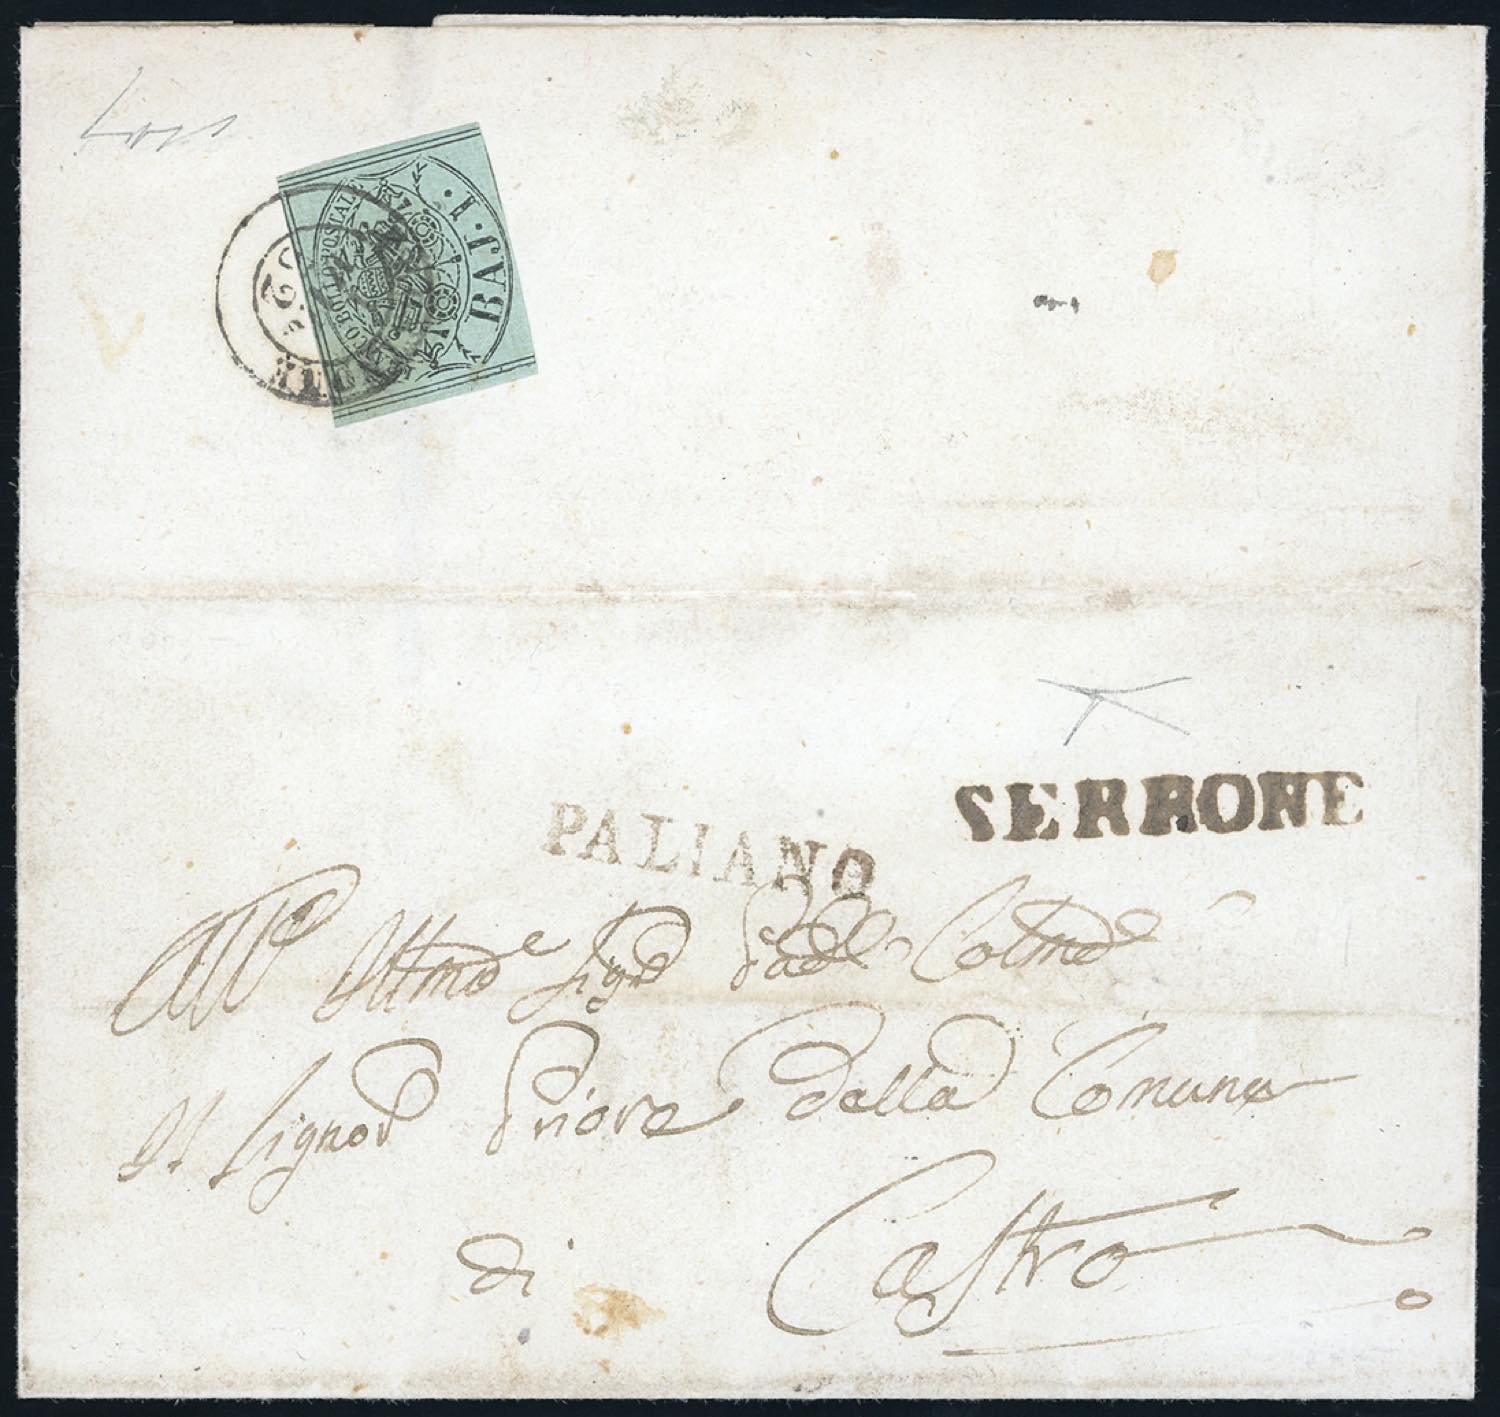 FRANCO BOLLO POSTALE
BAJ. 1.
SERRONE
PALIANO
All' Ill.mo Sig.re
Il Signor Priore della Comune
di Castro